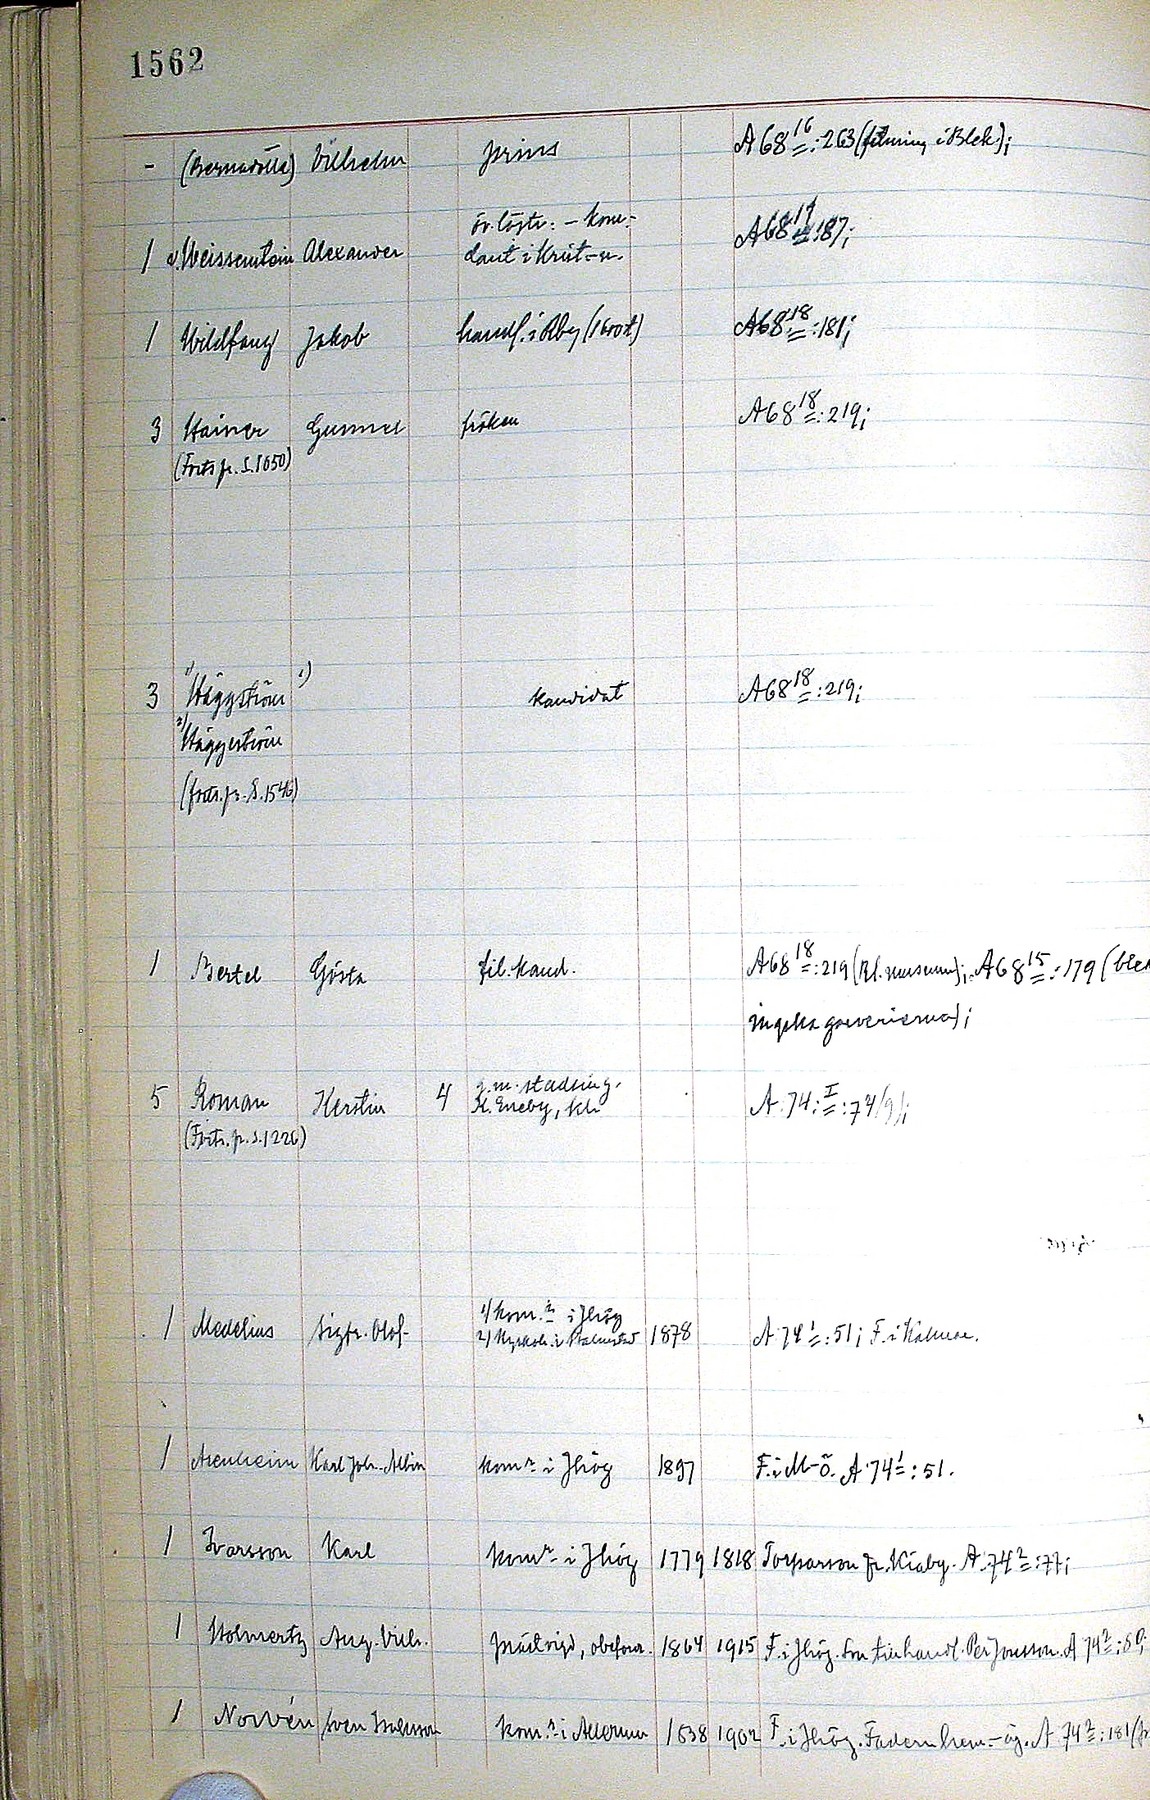 1562
- (Bernadotte) Vilhelm prins A 68 16: 263 (filmning i Blek.);
öv.löjtn. - kom-
1 v. Weissenstein Alexander dant i Krist-n. A 68 17: 187;
1 Wildfang Jakob handl. i Rby (1600 t) A 68 18: 181;
3 Hainer Gunnel fröken A 68 18: 219;
(Forts fr. S. 1050)
3 1) Häggström 1) kandidat A 68 18: 219;
2) Häggeström
(forts. fr. S. 1546)
1 Bertel Gösta fil. kand. A 68 18: 219 (Kl. museum); A 68 15: 179 (blek
ingska garverierna);
g. m. stadsing.
5 Roman Kerstin 4 K. Eneby, Kh A 74: I: 74/9/;
(Forts. fr. S. 1226)
1) kom. r i Jhög
1 Medelius Sigfr. Olof 2) Kyrkoh. i 1878 A 74 1: 51; F. i Kalmar.
1 Karl Joh. Albin kom r i Jhög 1897 F. i M-ö. A 74 1: 51.
1 Ivarsson Karl kom r i Jhög 1779 1818 Torparson fr. Kiaby. A 74 2: 77;
1 Holmertz Aug. Vilh. 1864 1915 F. i Jhög. Son t. Per Jonsson. A 74 2:
1 Norvén Sven Svensson kom. r i Allerum 1838 1902 F. i Jhög. Fadern hem.-äg. A 74 2: 181